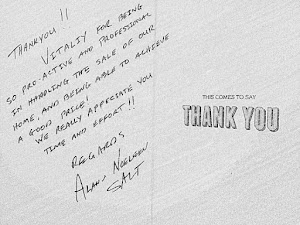 THANKYOU !!
VITALIY FOR BEING
SO PRO-ACTIVE AND PROFESSIONAL
IN HANDLING THE SALE OF OUR
HOME, AND BEING ABLE TO ACHIEVE
A GOOD PRICE!
WE REALLY APPRECIATE YOU
TIME AND EFFORT!!
REGARDS
ALAN
THIS COMES TO SAY
THANK YOU